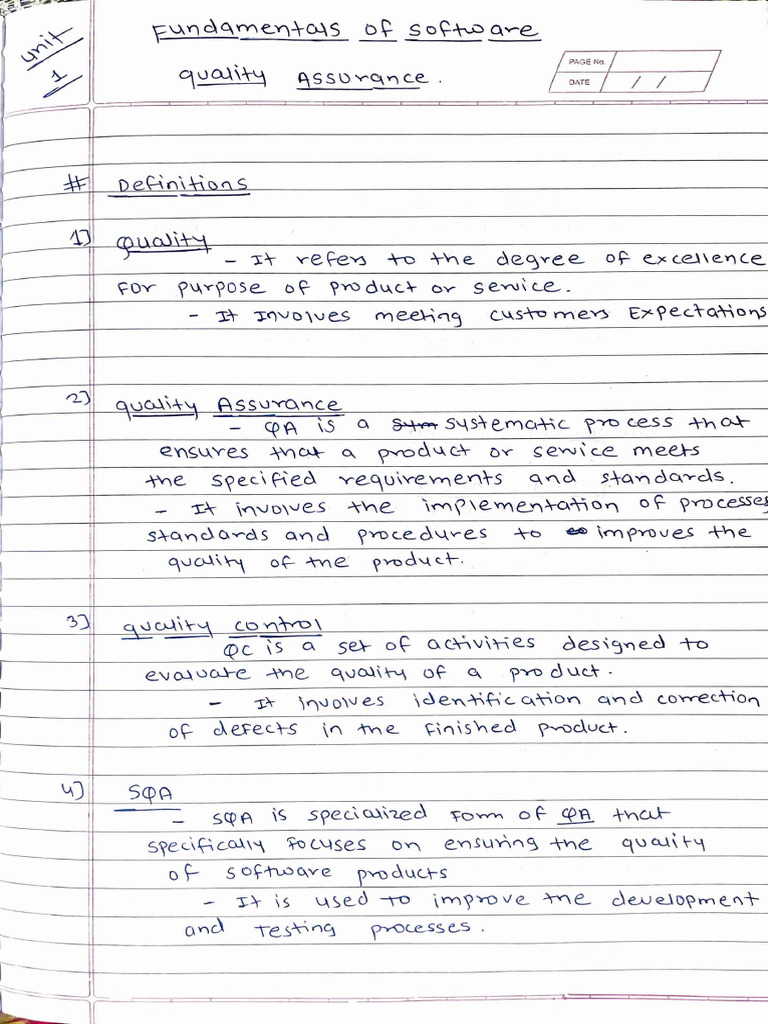 unit
1
Fundamentals of software
quality Assurance.
PAGE No.
DATE / /
# Definitions
1] Quality
- It refers to the degree of excellence
for purpose of product or service.
- It Involves meeting customers Expectations
2] quality Assurance
- QA is a sym systematic process that
ensures that a product or service meets
the specified requirements and standards.
- It involves the implementation of processes
standards and procedures to improves the
quality of the product.
3] quality control
QC is a set of activities designed to
evaluate the quality of a product.
- It involves identification and correction
of defects in the finished product.
4] SQA
- SQA is specialized form of QA that
specifically focuses on ensuring the quality
of software products
- It is used to improve the development
and testing processes.